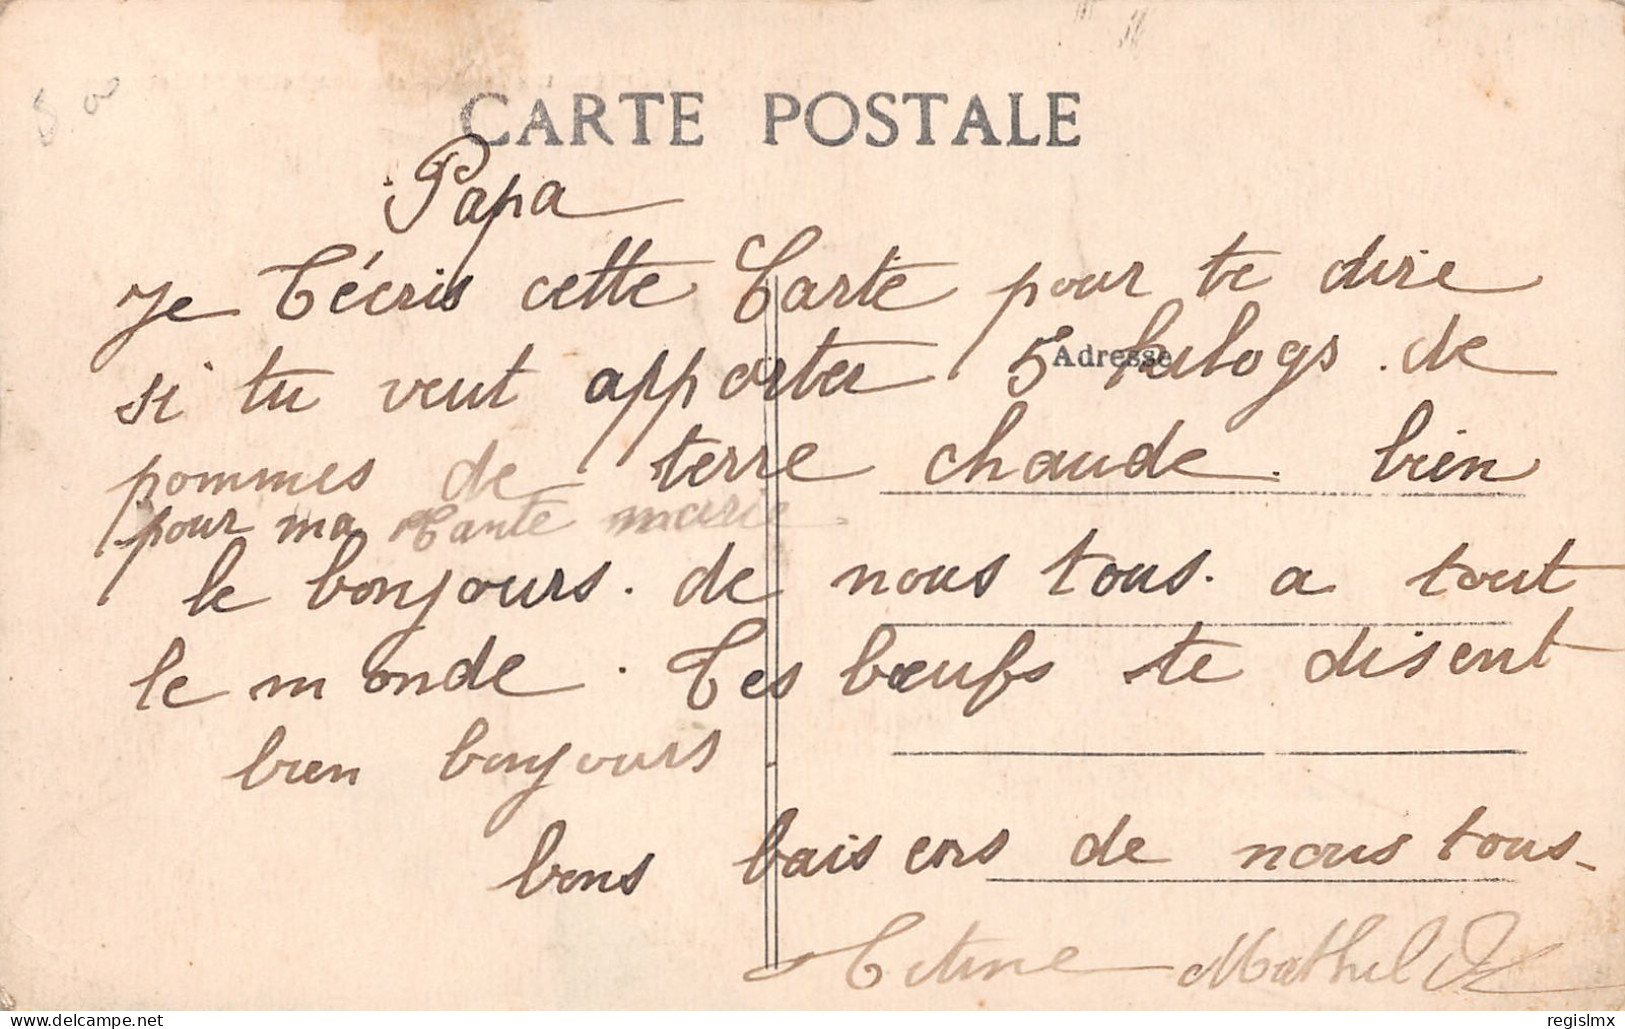 CARTE POSTALE
Papa
Je t'écris cette Carte pour te dire
si tu veut apporter 5 kilogs. de
Adresse
pommes de terre chaude. bien
pour ma Tante marie
le bonjours. de nous tous. a tout
le monde. Tes bœufs te disent
bien bonjours
bons baisers de nous tous
Mathilde
regislmx